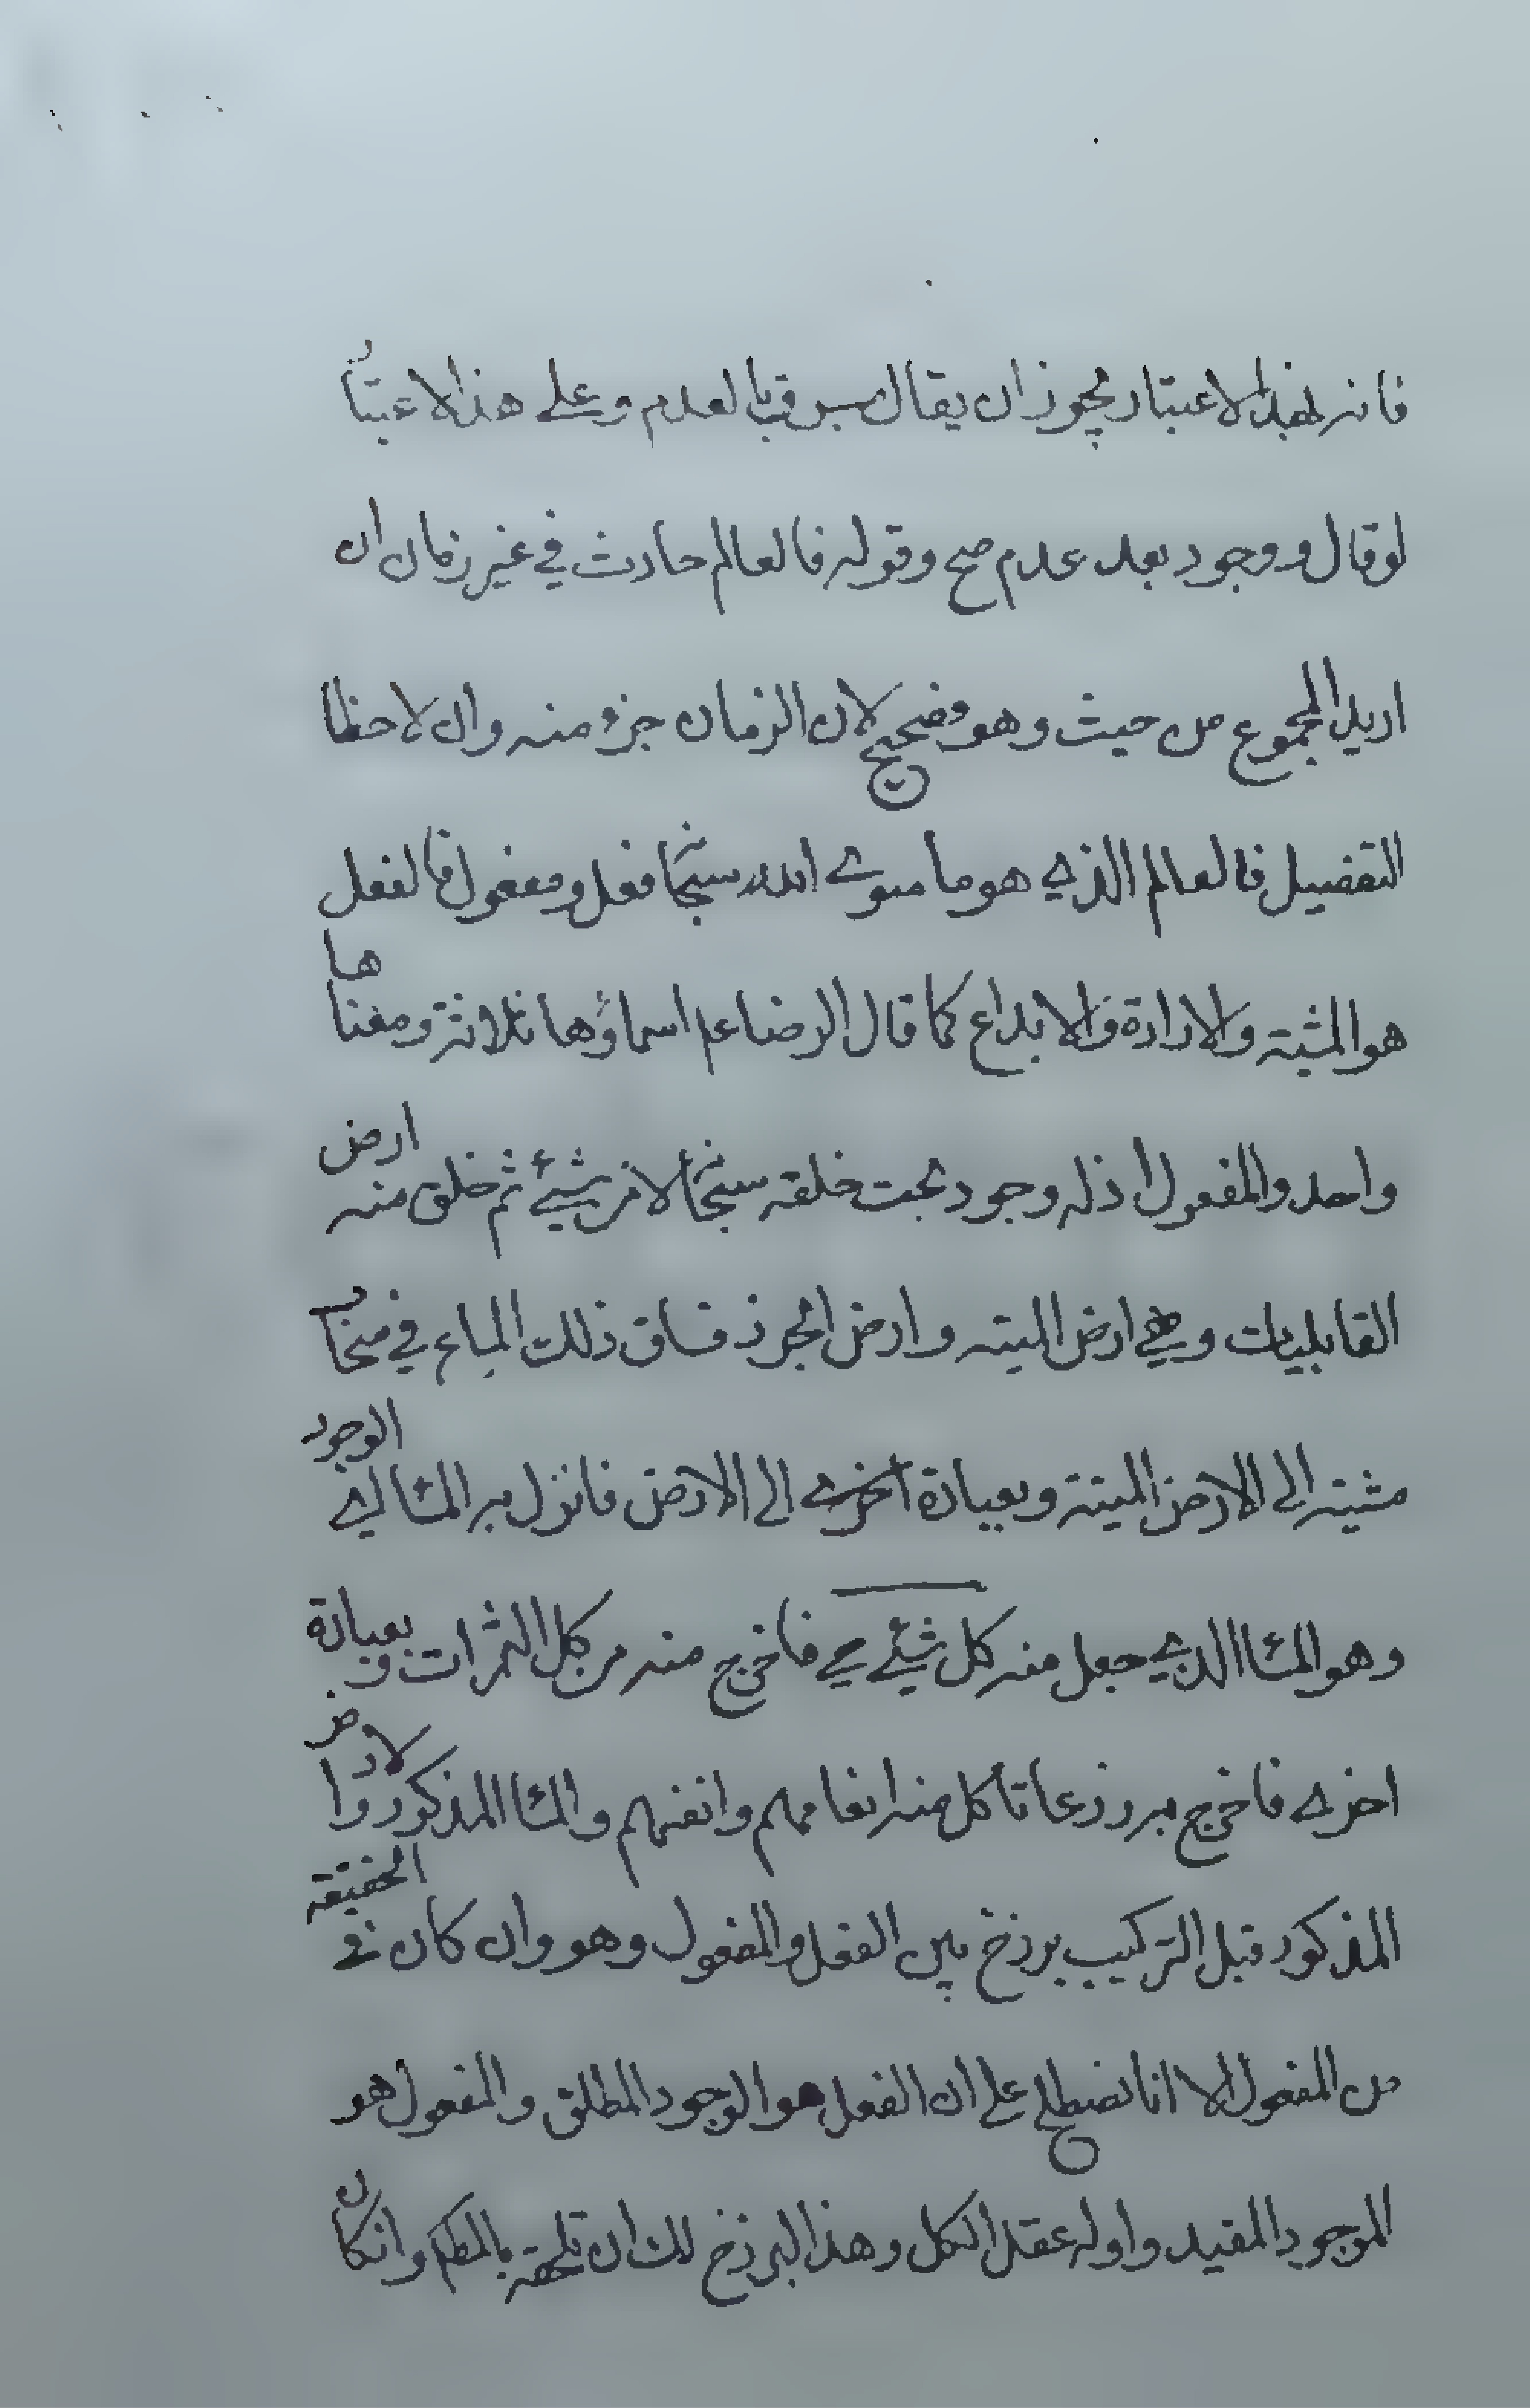 فانه لهذا الاعتبار يجوز ان يقال سبوقبا لعدم وعلى هذا الاعتبار
لو قال ووجود بعد عدم صح وقوله فالعالم حادث في غير زمان ان
اريد المجموع من حيث وهو فصحيح لان الزمان جزؤ منه وان لاحظنا
التفصيل فالعالم الذي هو ما سوى الله سبحانه فعل ومفعول فالفعل
هو المشية والارادة والابداع كما قال الرضا عم اسماؤها ثلاثة ومعناها
واحد والمفعول اذله وجود بحت خلقه سبحانه لا من شيئ ثم خلق منه ارض
القابليات وهي ارض الميته وارض الجرز فساق ذلك الماء في سحاب
مشيته الى الارض الميتة وبعبارة اخرى الى الارض فانزل به الماء اي الوجود
وهو الماء الذي جعل منه كل شيئ حي فاخرج منه من كل الثمرات وبعبارة
اخرى فاخرج به زرعا تاكل منه انعامهم وانفسهم والماء المذكور والارض
المذكور قبل التركيب برزخ بين الفعل والمفعول وهو وان كان في الحقيقة
من المفعول الا انا نصطلح على ان الفعل هو الوجود المطلق والمفعول هو
الموجود المقيد واوله عقل الكل وهذا البرزخ لك ان تلحقه بالمطلم وان كان